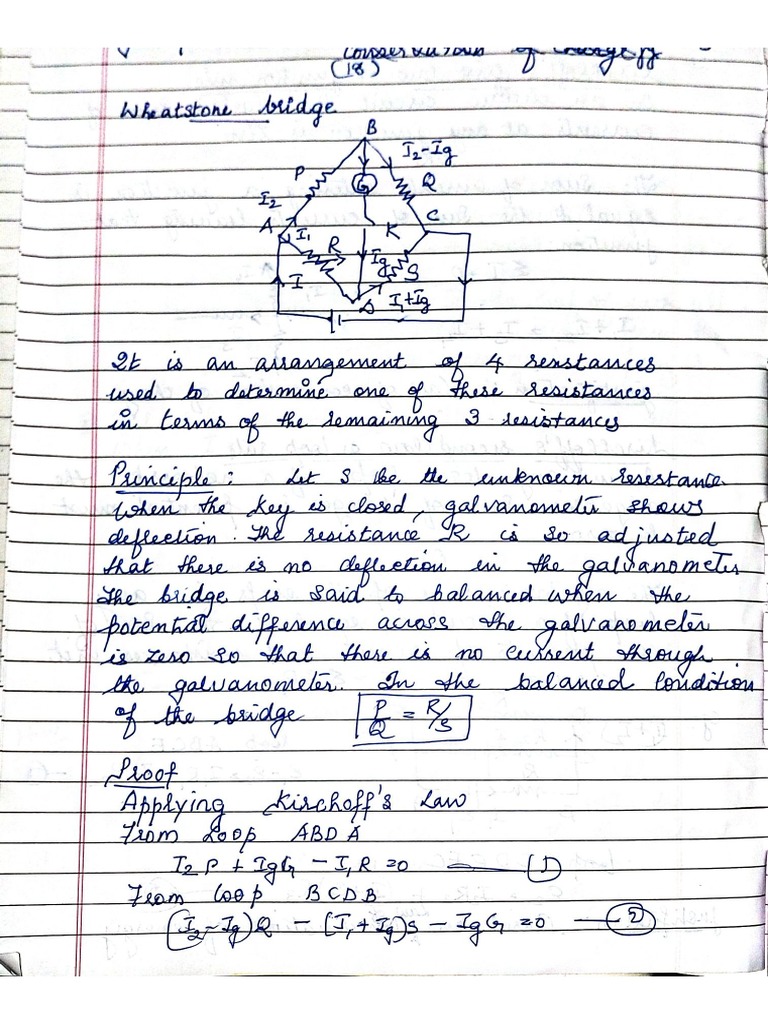 Conservation of charge
(18)
Wheatstone bridge
B
I2-Ig
P
G
Q
I2
A
I1
R
K
C
I
Ig
S
D
I1+Ig
It is an arrangement of 4 resistances
used to determine one of these resistances
in terms of the remaining 3 resistances
Principle: Let S be the unknown resestance
When the key is closed, galvanometer shows
deflection. The resistance R is so adjusted
that there is no deflection in the galvanometer
The bridge is said to balanced when the
potential difference across the galvanometer
is zero so that there is no current through
the galvanometer. In the balanced condition
of the bridge P/Q = R/S
Proof
Applying Kirchoff's Law
From Loop ABDA
I2 P + IgG - I1R = 0 — (1)
From loop BCDB
(I2-Ig)Q - (I1+Ig)S - IgG = 0 — (2)